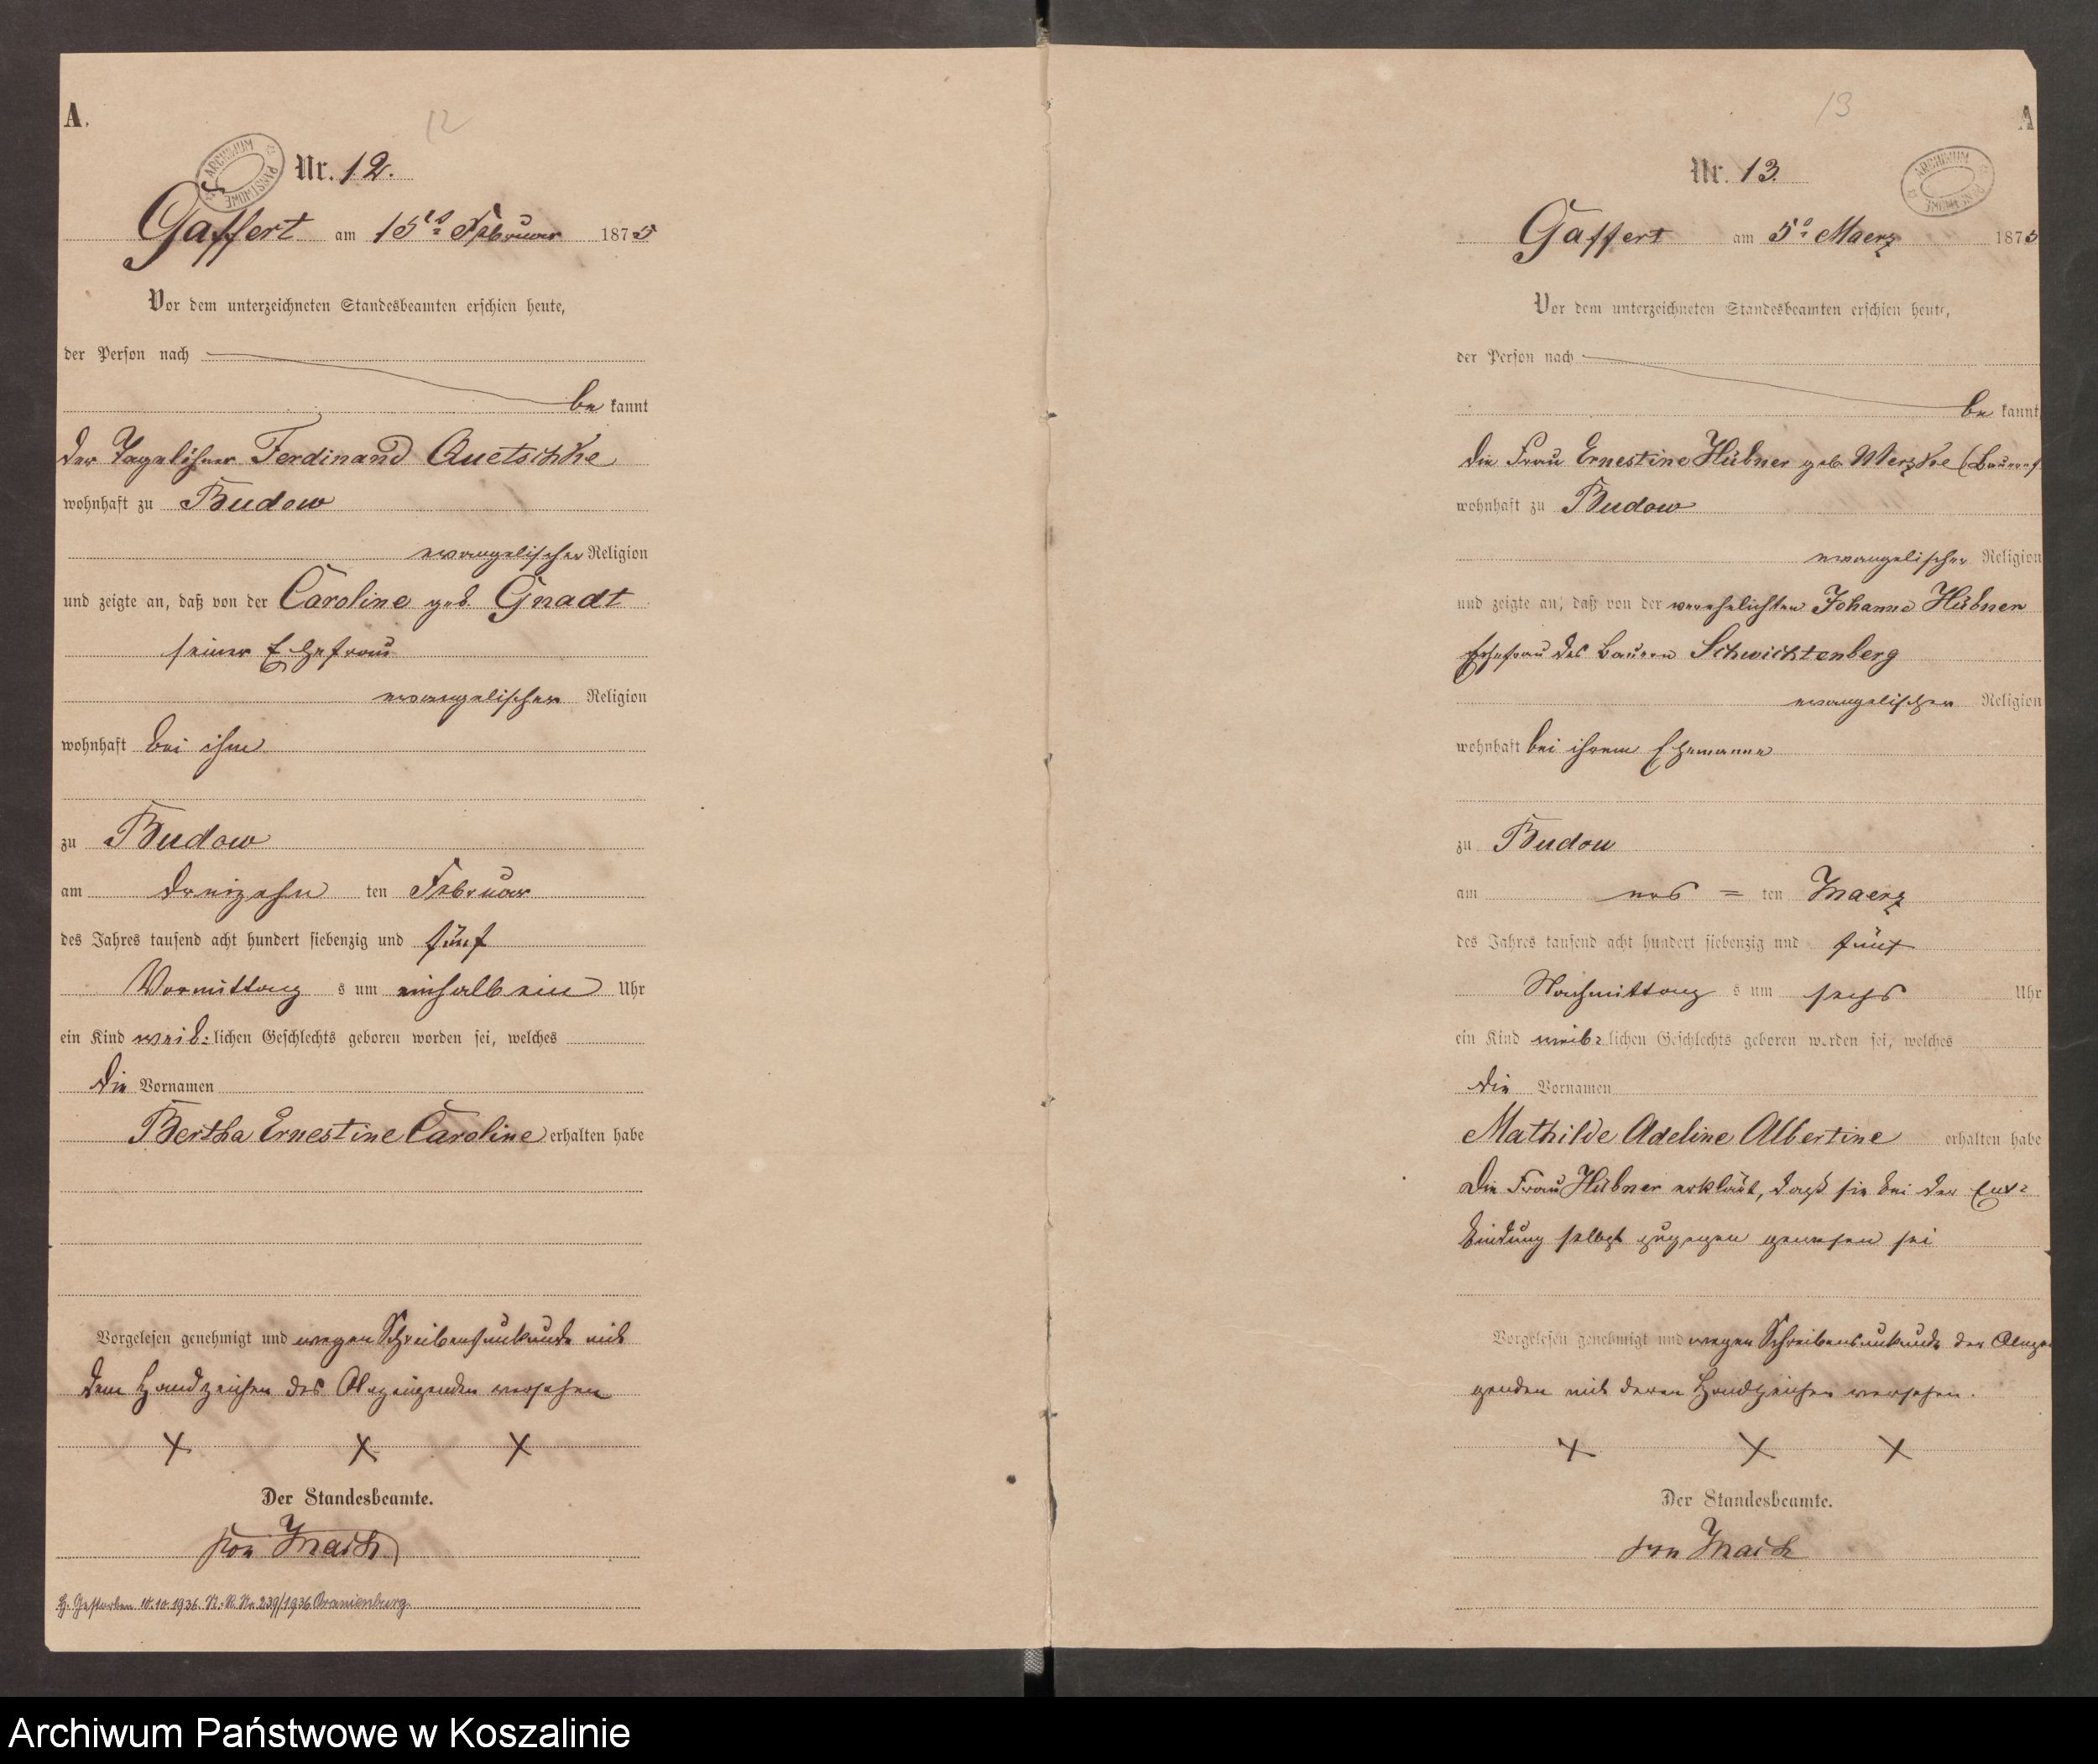 A.
12
ARCHIWUM PAŃSTWOWE
Nr. 12.
Gaffert am 15ts Februar 1875
Vor dem unterzeichneten Standesbeamten erschien heute,
der Person nach
be kannt
der Tagelöhner Ferdinand Quetschke
wohnhaft zu Budow
evangelischer Religion
und zeigte an, daß von der Caroline geb. Gnadt
seiner Ehefrau
evangelischer Religion
wohnhaft bei ihm
zu Budow
am dreizehn ten Februar
des Jahres tausend acht hundert siebenzig und fünf
Vormittag s um einhalb ein Uhr
ein Kind weib: lichen Geschlechts geboren worden sei, welches
die Vornamen
Bertha Ernestine Caroline erhalten habe
Vorgelesen genehmigt und wegen Schreibensunkunde mit
dem Handzeichen des Anzeigenden versehen
X X X
Der Standesbeamte.
von Mach
H. Gestorben 10.10.1936. St. A. Nr. 239/1936 Oranienburg.
13
A
ARCHIWUM PAŃSTWOWE
Nr. 13.
Gaffert am 5. Maerz 1875
Vor dem unterzeichneten Standesbeamten erschien heute,
der Person nach
be kannt
die Frau Ernestine Hübner geb.
wohnhaft zu Budow
evangelischer Religion
und zeigte an, daß von der verehelichten Johanne Hübner
Ehefrau des Bauern Schwichtenberg
evangelischer Religion
wohnhaft bei ihrem Ehemanne
zu Budow
am = ten Maerz
des Jahres tausend acht hundert siebenzig und fünf
Nachmittag s um sechs Uhr
ein Kind weib: lichen Geschlechts geboren worden sei, welches
die Vornamen
Mathilde Adeline Albertine erhalten habe
Die Frau Hübner erklärt, daß sie bei der Ent-
bindung selbst zugegen gewesen sei
Vorgelesen genehmigt und wegen Schreibensunkunde der Anzei
genden mit deren Handzeichen versehen.
X X X
Der Standesbeamte.
von Mach
Archiwum Państwowe w Koszalinie